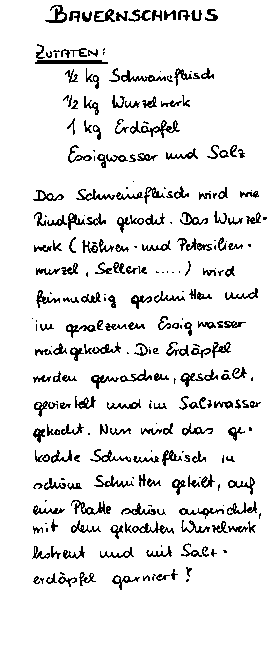 BAUERNSCHMAUS
ZUTATEN:
1/2 kg Schweinefleisch
1/2 kg Wurzelwerk
1 kg Erdäpfel
Essigwasser und Salz
Das Schweinefleisch wird wie
Rindfleisch gekocht. Das Wurzel-
werk (Möhren- und Petersilien-
wurzel, Sellerie .....) wird
feinnudelig geschnitten und
im gesalzenen Essigwasser
weichgekocht. Die Erdäpfel
werden gewaschen, geschält,
geviertelt und im Salzwasser
gekocht. Nun wird das ge-
kochte Schweinefleisch in
schöne Schnitten geteilt, auf
einer Platte schön angerichtet,
mit dem gekochten Wurzelwerk
bestreut und mit Salz-
erdäpfel garniert!